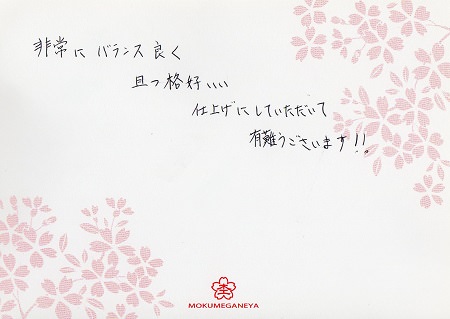 非常に バランス良く
且つ格好いい
仕上げにしていただいて
有難うございます!!
MOKUMEGANEYA